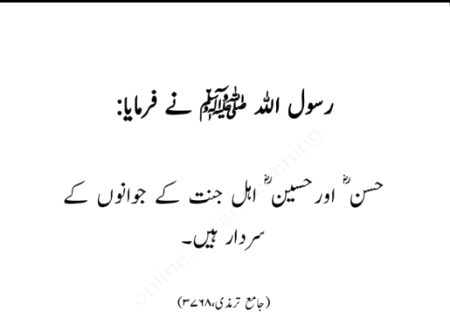 رسول اللہ ﷺ نے فرمایا:
حسنؓ اور حسینؓ اہل جنت کے جوانوں کے
سردار ہیں۔
(جامع ترمذی،۳۷۶۸)